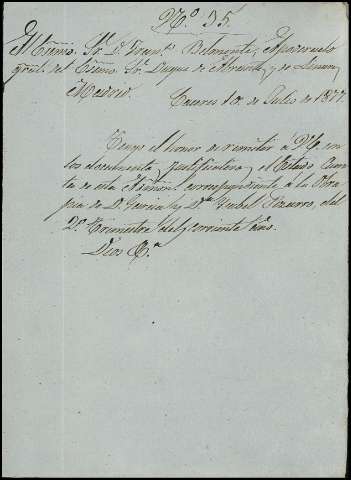 Nº 35.
Sr. D. Franco. Belmonte, Apoderado
gral. del Excmo. Sr. Duque de Abrantes y de Linares
Madrid.
Caceres 10 de Julio de 1877.
Tengo el honor de remitir á V.E. con
los documentos justificativos, el Estado Cuen
ta de esta Admon. correspondiente á la Obra
pia de D. García y Dª Ysabel Pizarro, del
2º Trimestre del corriente año.
Dios &ª